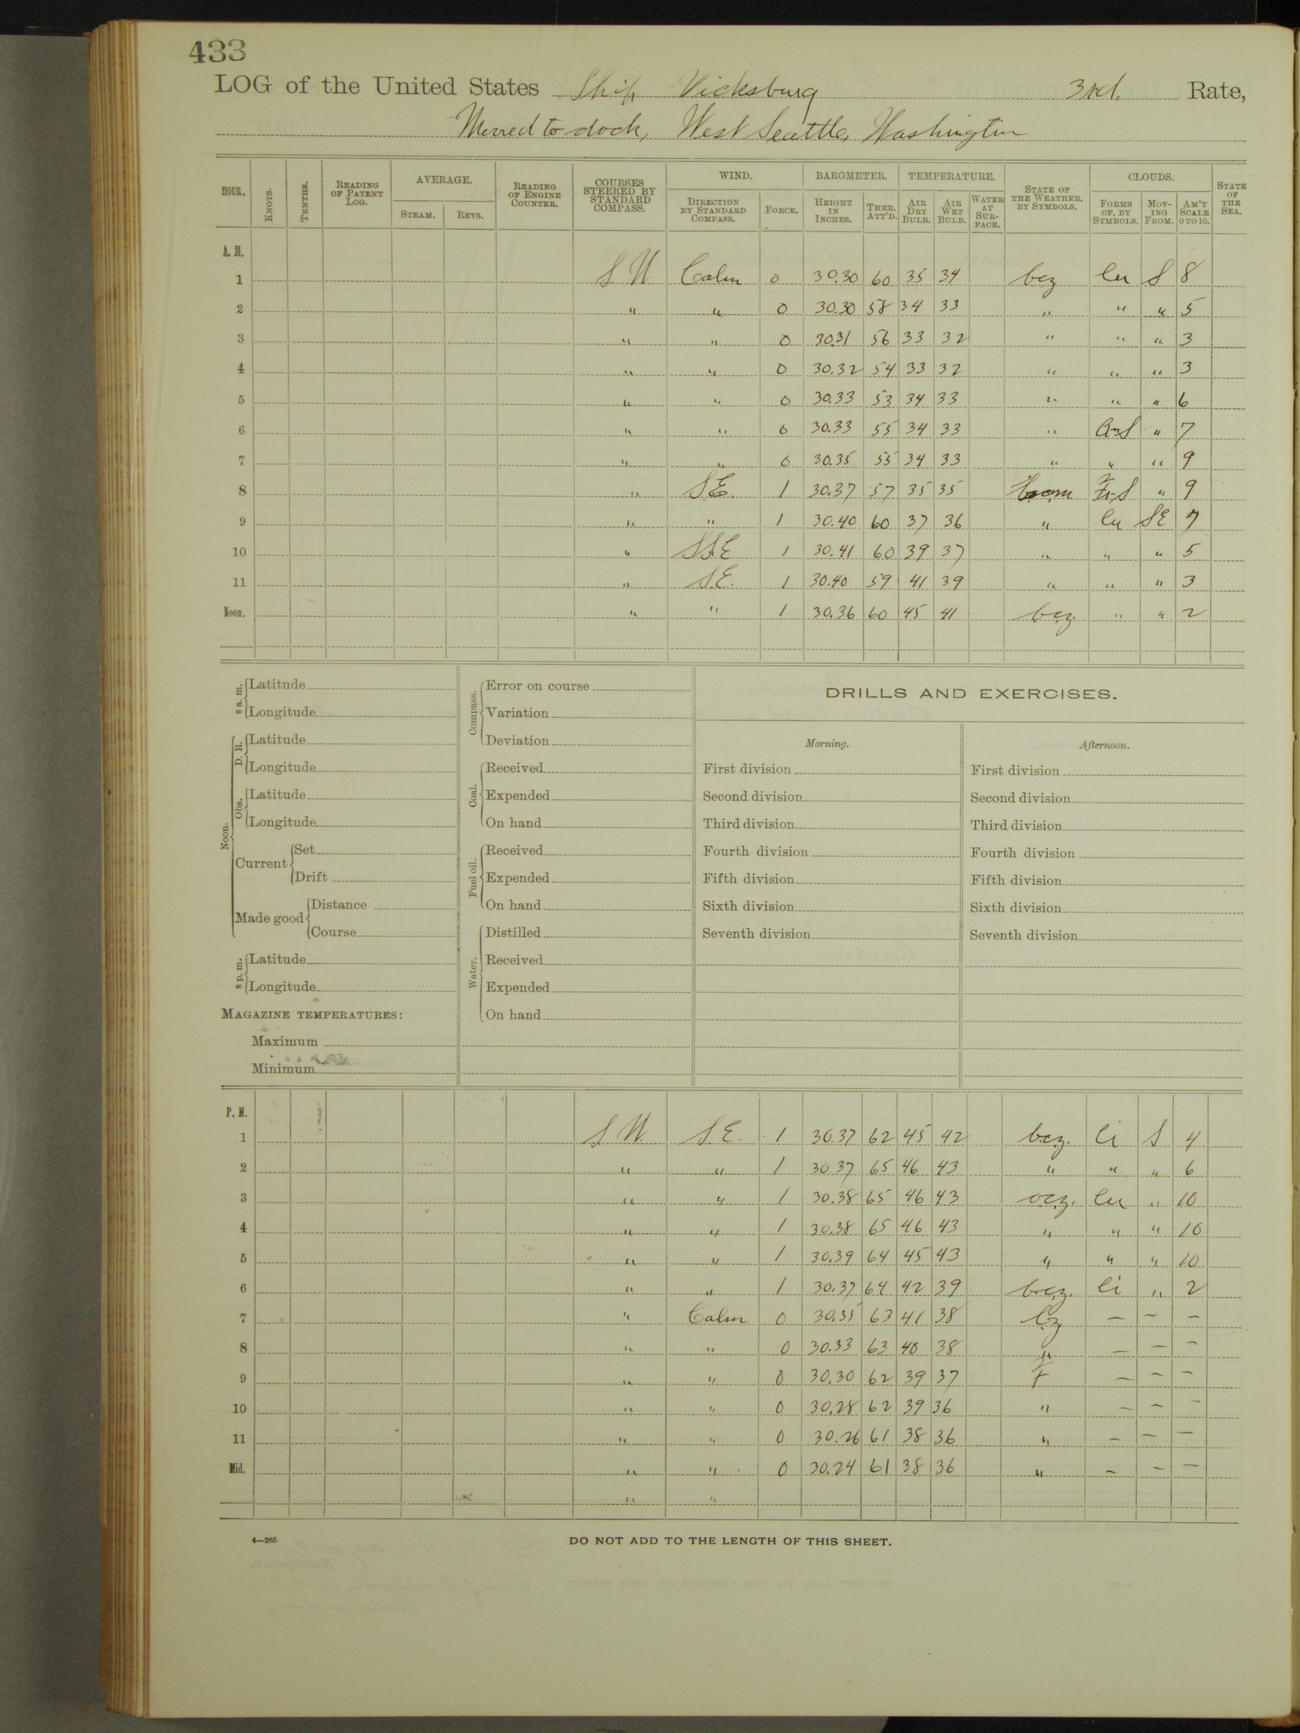 433
LOG of the United States Ship Vicksburg 3rd. Rate,
Moored to dock, West Seattle, Washington
HOUR. KNOTS. TENTHS. READING OF PATENT LOG. AVERAGE. STEAM. REVS. READING OF ENGINE COUNTER. COURSES STEERED BY STANDARD COMPASS. WIND. DIRECTION BY STANDARD COMPASS. FORCE. BAROMETER. HEIGHT IN INCHES. THER. ATT'D. TEMPERATURE. AIR DRY BULB. AIR WET BULB. WATER AT SURFACE. STATE OF THE WEATHER, BY SYMBOLS. CLOUDS. FORMS OF, BY SYMBOLS. MOVING FROM. AM'T SCALE 0 TO 10. STATE OF THE SEA.
A. M.
1 S W Calm 0 30.30 60 35 34 bcz Cu S 8
2 " " 0 30.30 58 34 33 " " " 5
3 " " 0 30.31 56 33 32 " " " 3
4 " " 0 30.32 54 33 32 " " " 3
5 " " 0 30.33 53 34 33 " " " 6
6 " " 0 30.33 55 34 33 " A-S " 7
7 " " 0 30.35 55 34 33 " " " 9
8 " S.E. 1 30.37 57 35 35 " 9
9 " " 1 30.40 60 37 36 " Cu SE 7
10 " SSE 1 30.41 60 39 37 " " " 5
11 " S.E. 1 30.40 59 41 39 " " " 3
Noon. " " 1 30.36 60 45 41 bcz. " " 2
8 a. m. Latitude
Longitude
Noon. D. R. Latitude
Longitude
Obs. Latitude
Longitude
Current Set
Drift
Made good Distance
Course
8 p. m. Latitude
Longitude
MAGAZINE TEMPERATURES:
Maximum
Minimum
Compass. Error on course
Variation
Deviation
Coal. Received
Expended
On hand
Fuel oil. Received
Expended
On hand
Water. Distilled
Received
Expended
On hand
DRILLS AND EXERCISES.
Morning.
First division
Second division
Third division
Fourth division
Fifth division
Sixth division
Seventh division
Afternoon.
First division
Second division
Third division
Fourth division
Fifth division
Sixth division
Seventh division
P. M.
1 S W S E 1 30.37 62 45 42 bcz. Ci S 4
2 " " 1 30.37 65 46 43 " " " 6
3 " " 1 30.38 65 46 43 ocz. Cu " 10
4 " " 1 30.38 65 46 43 " " " 10
5 " " 1 30.39 64 45 43 " " " 10
6 " " 1 30.37 64 42 39 bcz. Ci " 2
7 " Calm 0 30.35 63 41 38 bz — — —
8 " " 0 30.33 63 40 38 " — — —
9 " " 0 30.30 62 39 37 F — — —
10 " " 0 30.28 62 39 36 " — — —
11 " " 0 30.26 61 38 36 " — — —
Mid. " " 0 30.24 61 38 36 " — — —
" "
4—265
DO NOT ADD TO THE LENGTH OF THIS SHEET.